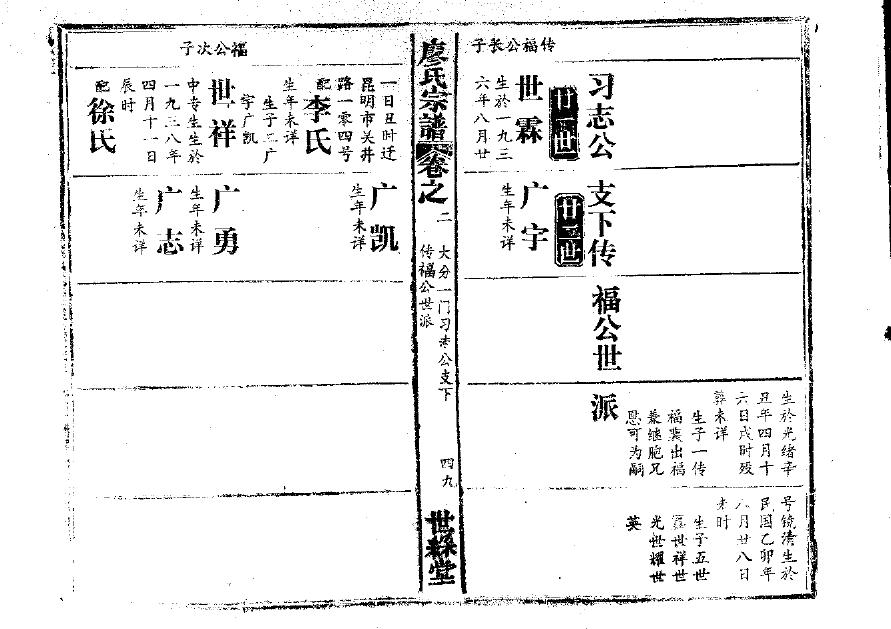 生於光绪辛
丑年四月十
六日戌时殁
葬未详
生子一传
福裳出福
兼继胞兄
恩可为嗣
号镜清生於
民国乙卯年
八月廿八日
未时
生子五世
霖世祥世
光世耀世
英
习志公
支下传
福公世
派
廿二世
廿三世
传福公长子
世霖
生於一九三
六年八月廿
广宇
生年未详
廖氏宗譜
卷之
二
大分一门习志公支下
传福公世派
四九
世綵堂
一日丑时迁
昆明市关井
路一零四号
配李氏
生年未详
生子二广
宇广凯
广凯
生年未详
福公次子
世祥
中专生生於
一九三八年
四月十一日
辰时
配徐氏
广勇
生年未详
广志
生年未详